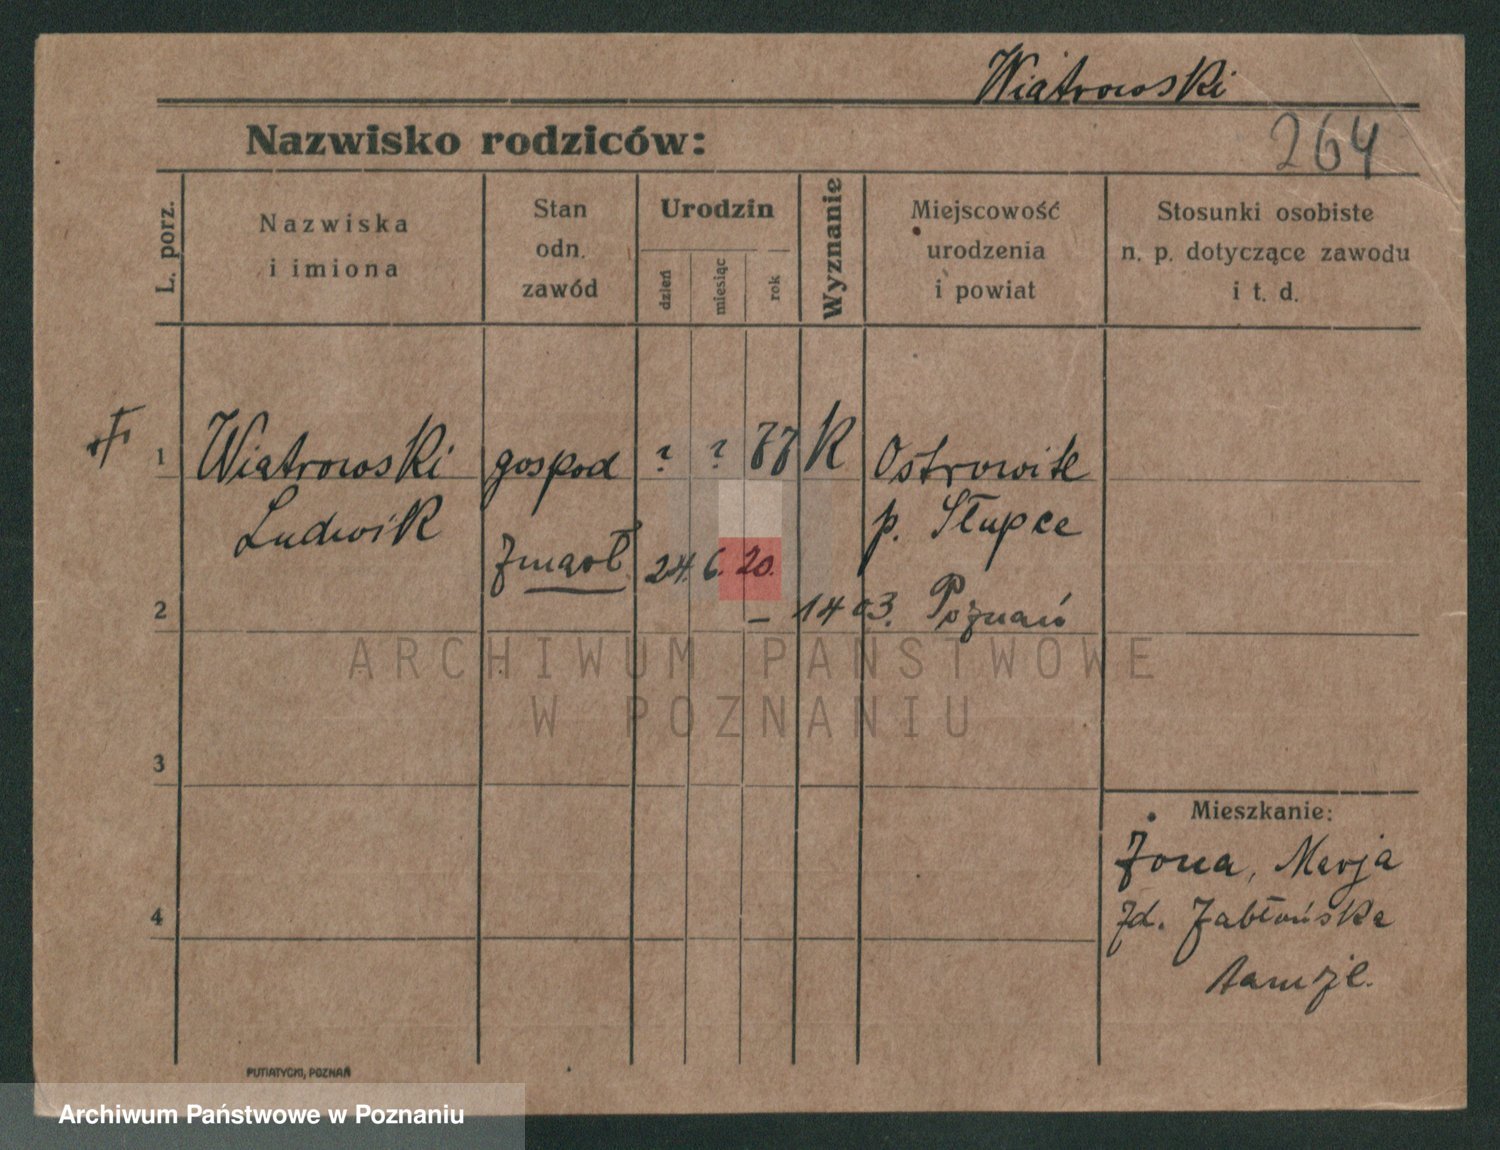 Wiatrowski
Nazwisko rodziców:
264
L. porz.
Nazwiska
i imiona
Stan
odn.
zawód
Urodzin
dzień
miesiąc
rok
Wyznanie
Miejscowość
urodzenia
i powiat
Stosunki osobiste
n. p. dotyczące zawodu
i t. d.
1 Wiatrowski gospod ? ? 77 K Ostrowite
Ludwik p. Słupca
zmarł 24. 6. 20.
2 – 1403. Poznań
ARCHIWUM PAŃSTWOWE
W POZNANIU
3
Mieszkanie:
Żona, Marja
zd. Zabłońska
4
tamże.
PUTIATYCKI, POZNAŃ
Archiwum Państwowe w Poznaniu